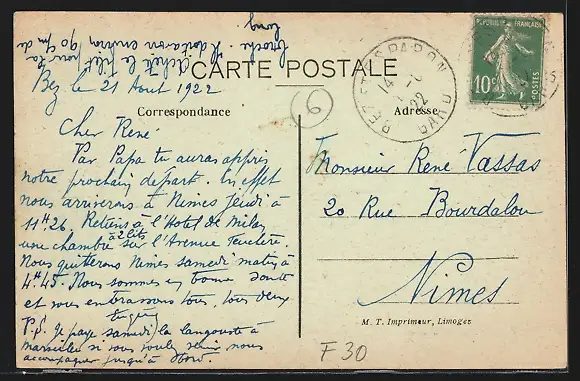 broche. Il doit avoir environ 90 c/m de
long
Achète le filet pour la
CARTE POSTALE
Correspondance
Adresse
Bez le 21 Août 1922
Cher René
Par Papa tu auras appris
notre prochain départ. En effet
nous arriverons à Nimes Jeudi à
11H26. Retiens à l'Hotel de Milan
une chambre à 2 lits sur l'Avenue Feuchère.
Nous quitterons Nimes samedi matin à
4H45. Nous sommes en bonne santé
et vous embrassons tous, tous deux
P.S. Je paye samedi la langouste à
Marseille si vous voulez venir nous
accompagner jusqu'à
6
BEZ-ET-ESPARON
14
22
GARD
REPUBLIQUE FRANÇAISE
10c
POSTES
Monsieur René Vassas
20 Rue Bourdalou
Nimes
M. T. Imprimeur, Limoges
F30